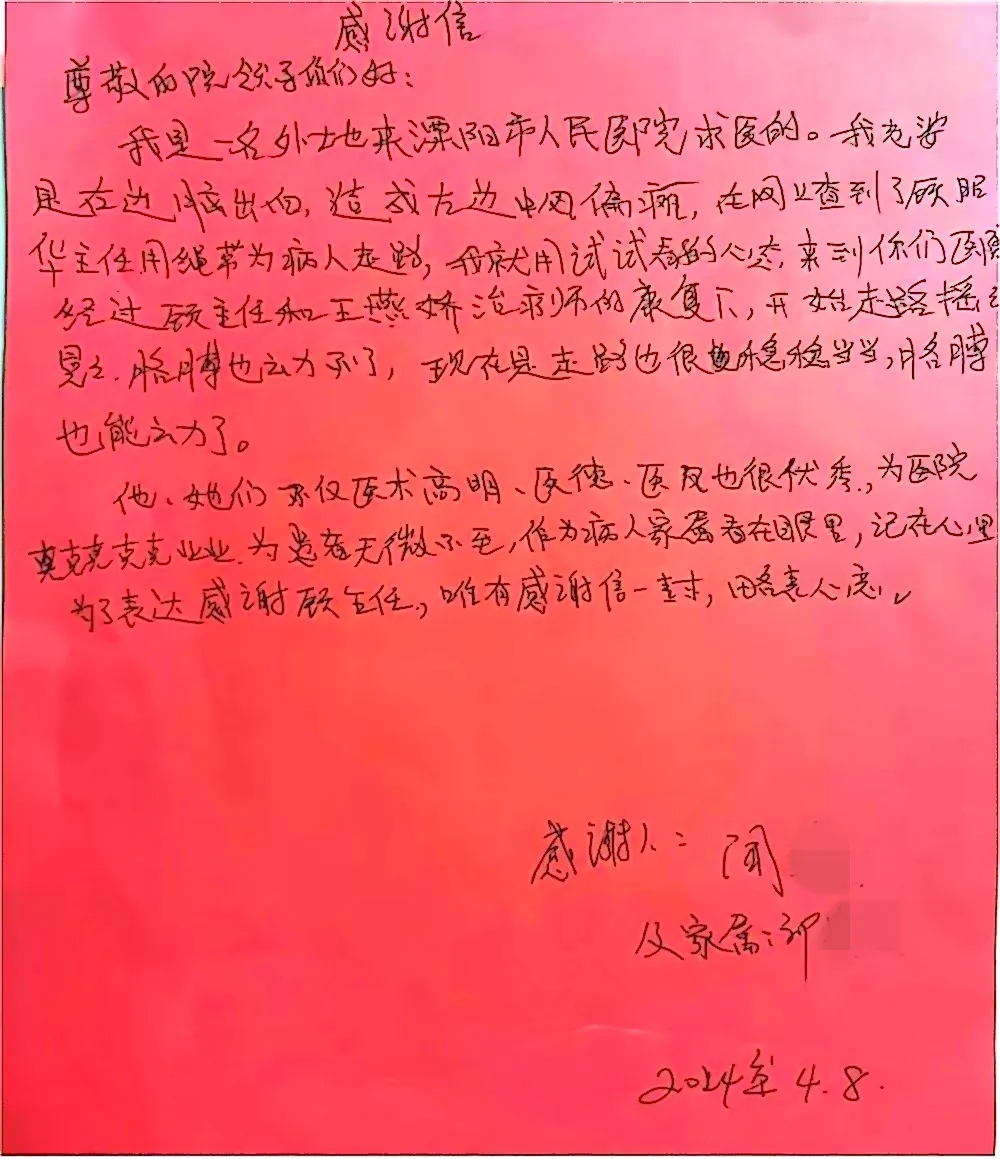 感谢信
尊敬的院领导你们好：
我是一名外地来溧阳市人民医院求医的。我老婆
是右边脑出血，造成左边中风偏瘫，在网上查到了顾昭
华主任用绳带为病人走路，我就用试试看的心态，来到你们医院
经过顾主任和王燕娇治疗师的康复下，开始走路摇
晃之，胳膊也云力不了，现在是走路也很稳稳当当，胳膊
也能云力了。
他、她们不仅医术高明、医德、医风也很优秀，为医院
克克业业、为患者无微不至，作为病人家属看在眼里，记在心里
为了表达感谢顾主任，唯有感谢信一封，略表心意。
感谢人：闻
及家属：邓
2024年4.8.